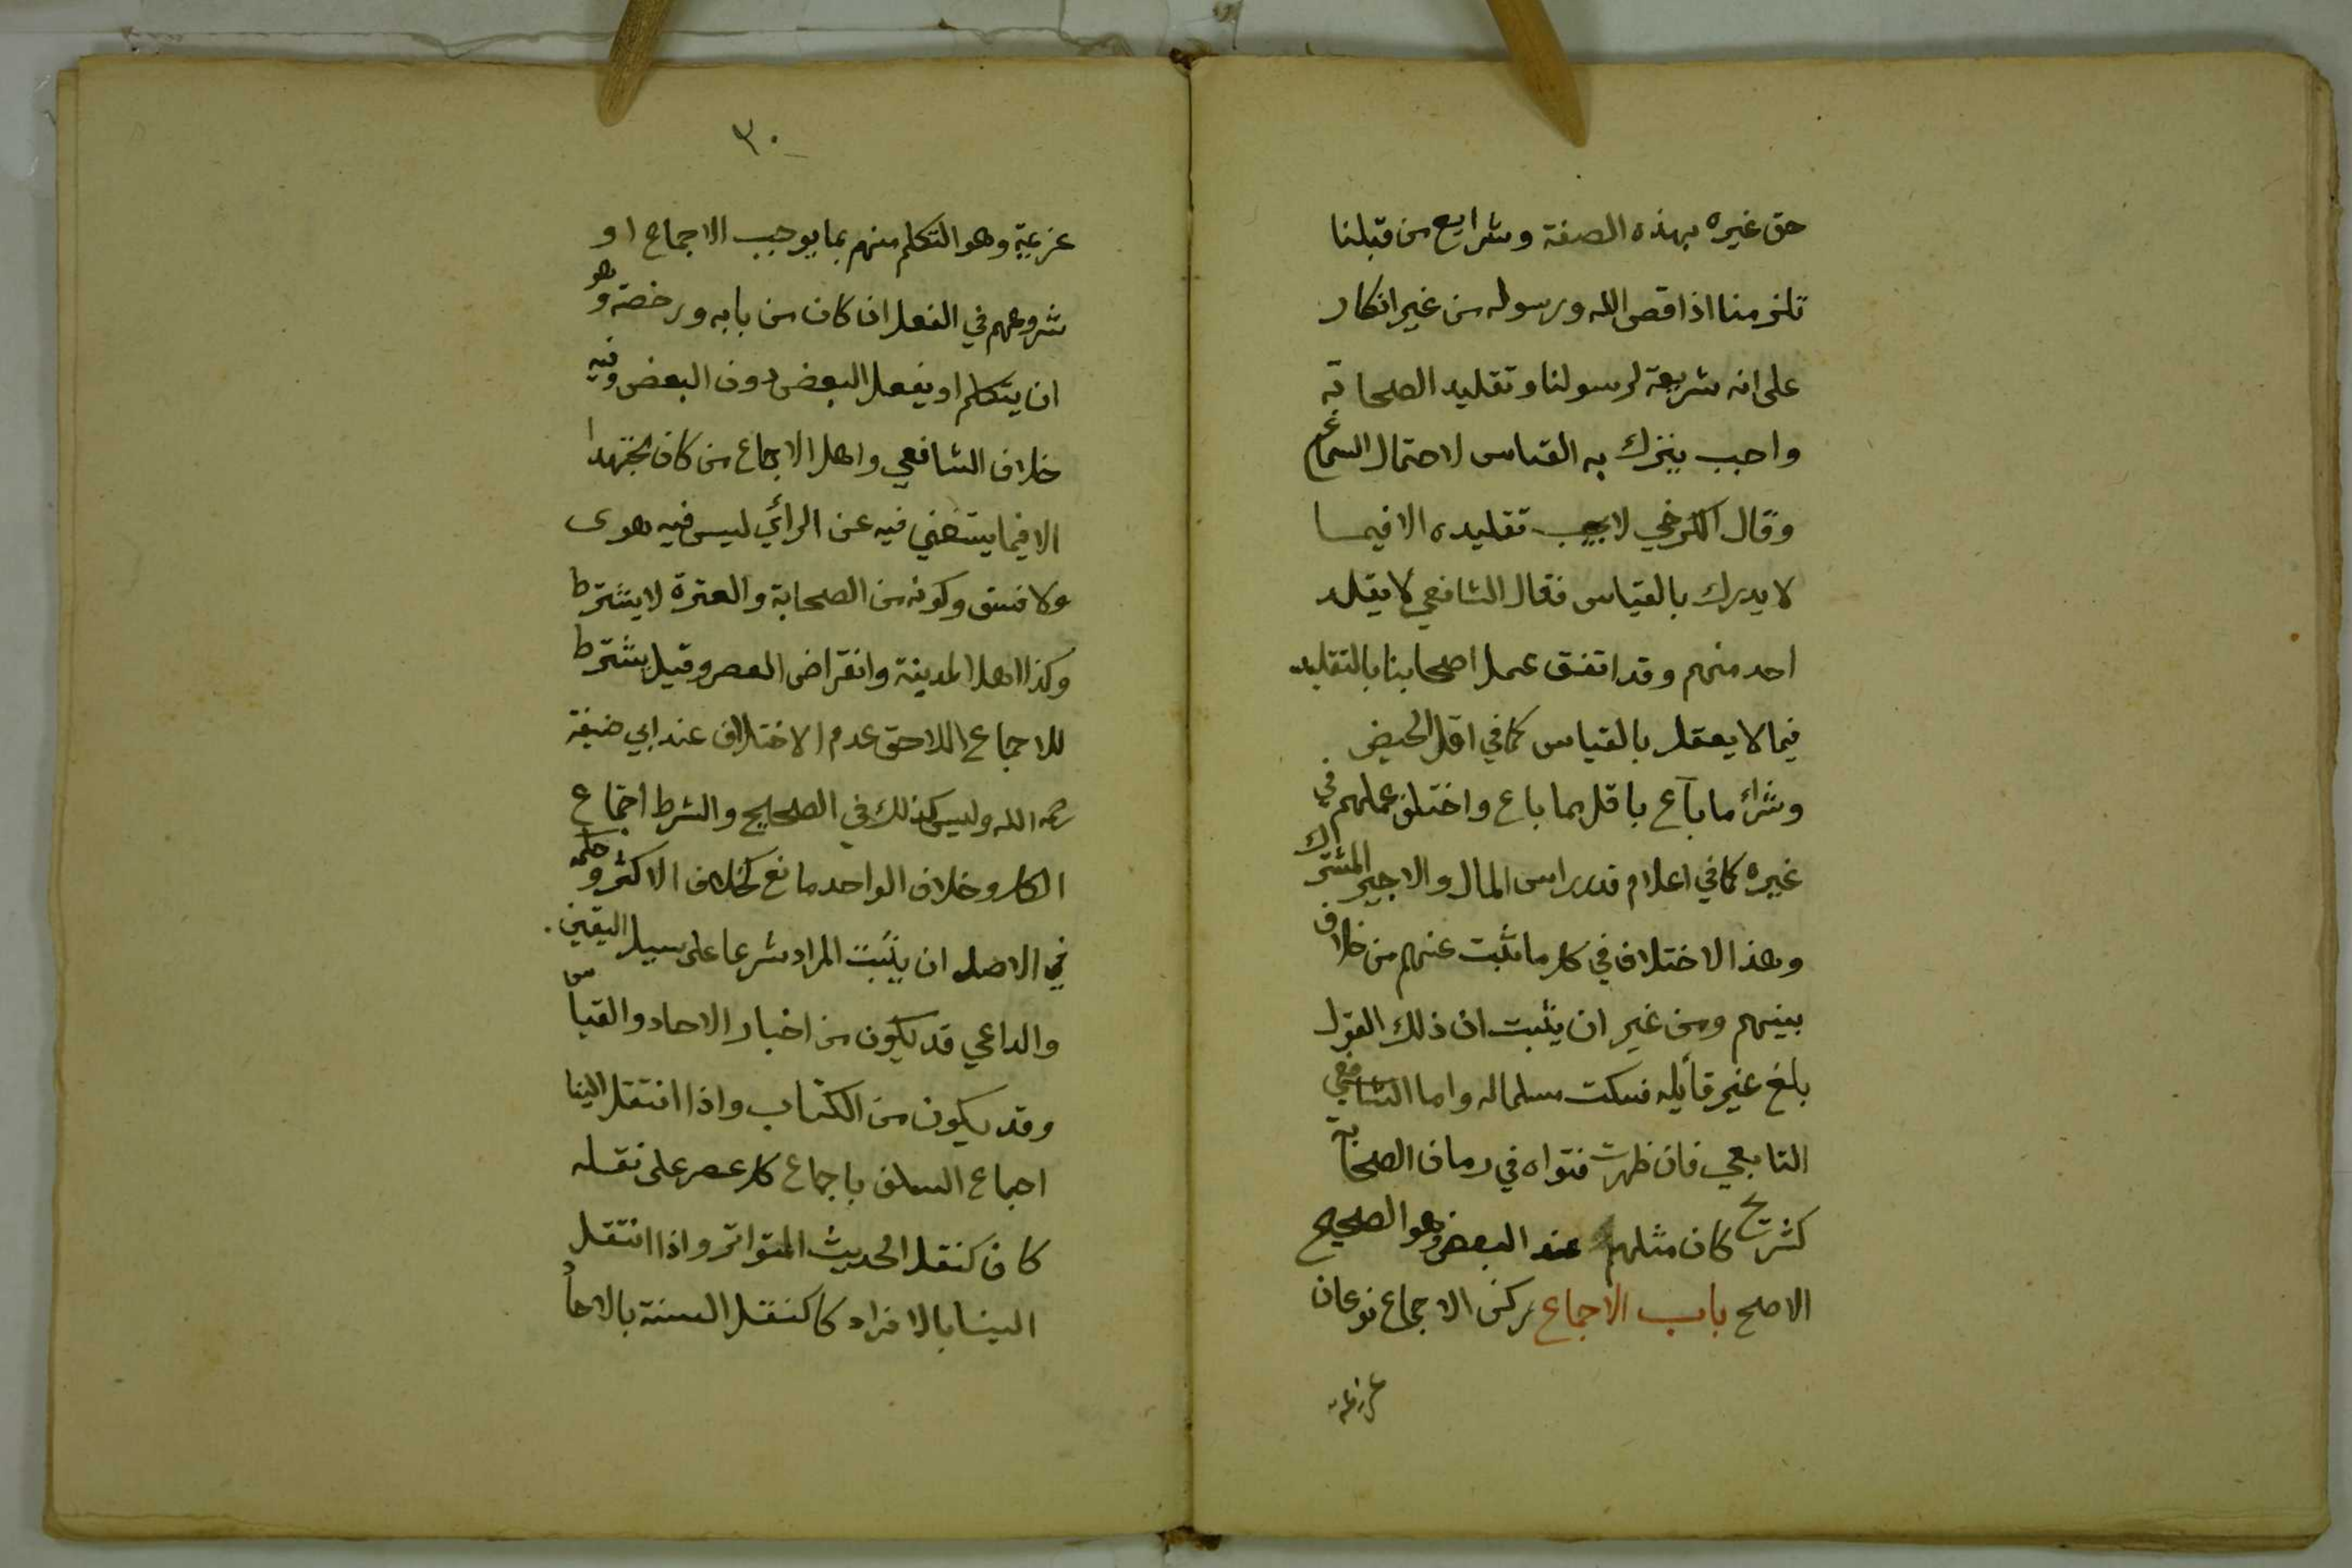 حق غيره بهذه الصفة وشرايع من قبلنا
تلزمنا اذا قص الله ورسوله من غير انكار
على انه شريعة لرسولنا وتقليد الصحابة
واجب يترك به القياس لاحتمال السماع
وقال الكرخي لا يجب تقليده الا فيما
لا يدرك بالقياس فقال الشافعي لا يقلد
احد منهم وقد اتفق عمل اصحابنا بالتقليد
فيما لا يعقل بالقياس كما في اقل الحيض
وشراء ما باع باقل بما باع واختلف عملهم في
غيره كما في اعلام قدر راس المال والاجير المشترك
وهذا الاختلاف في كل ما ثبت عنهم من خلاف
بينهم ومن غير ان يثبت ان ذلك القول
بلغ غير قائله فسكت مسلما له واما الشافعي
التابعي فان ظهرت فتواه في زمان الصحابة
كشريح كان مثلهم عند البعض وهو الصحيح
الاصح باب الاجماع ركن الاجماع نوعان
عزيمة
٣٠
عزيمة وهو التكلم منهم بما يوجب الاجماع او
شروعهم في الفعل ان كان من بابه ورخصة وهو
ان يتكلم او يفعل البعض دون البعض وفيه
خلاف الشافعي واهل الاجماع من كان مجتهدا
الا فيما يستغني فيه عن الرأي ليس فيه هوى
ولا فسق وكونه من الصحابة والعترة لا يشترط
وكذا اهل المدينة وانقراض العصر وقيل يشترط
للاجماع اللاحق عدم الاختلاف عند ابي حنيفة
رحمه الله وليس كذلك في الصحيح والشرط اجتماع
الكل وخلاف الواحد مانع كخلاف الاكثر وحكمه
في الاصل ان يثبت المراد شرعا على سبيل اليقين
والداعي قد يكون من اخبار الاحاد والقياس
وقد يكون من الكتاب واذا انتقل الينا
اجماع السلف باجماع كل عصر على نقله
كان كنقل الحديث المتواتر واذا انتقل
الينا بالافراد كا كنقل السنة بالاحاد